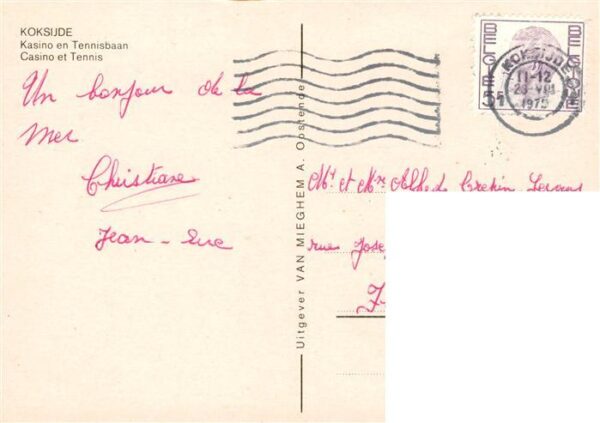 KOKSIJDE
Kasino en Tennisbaan
Casino et Tennis
Un bonjour de la
mer
Christiane
Jean-Luc
Uitgever VAN MIEGHEM A. Oostende
BELGIE
5F
BELGIQUE
KOKSIJDE
11-12
1975
Mr et Mme
rue